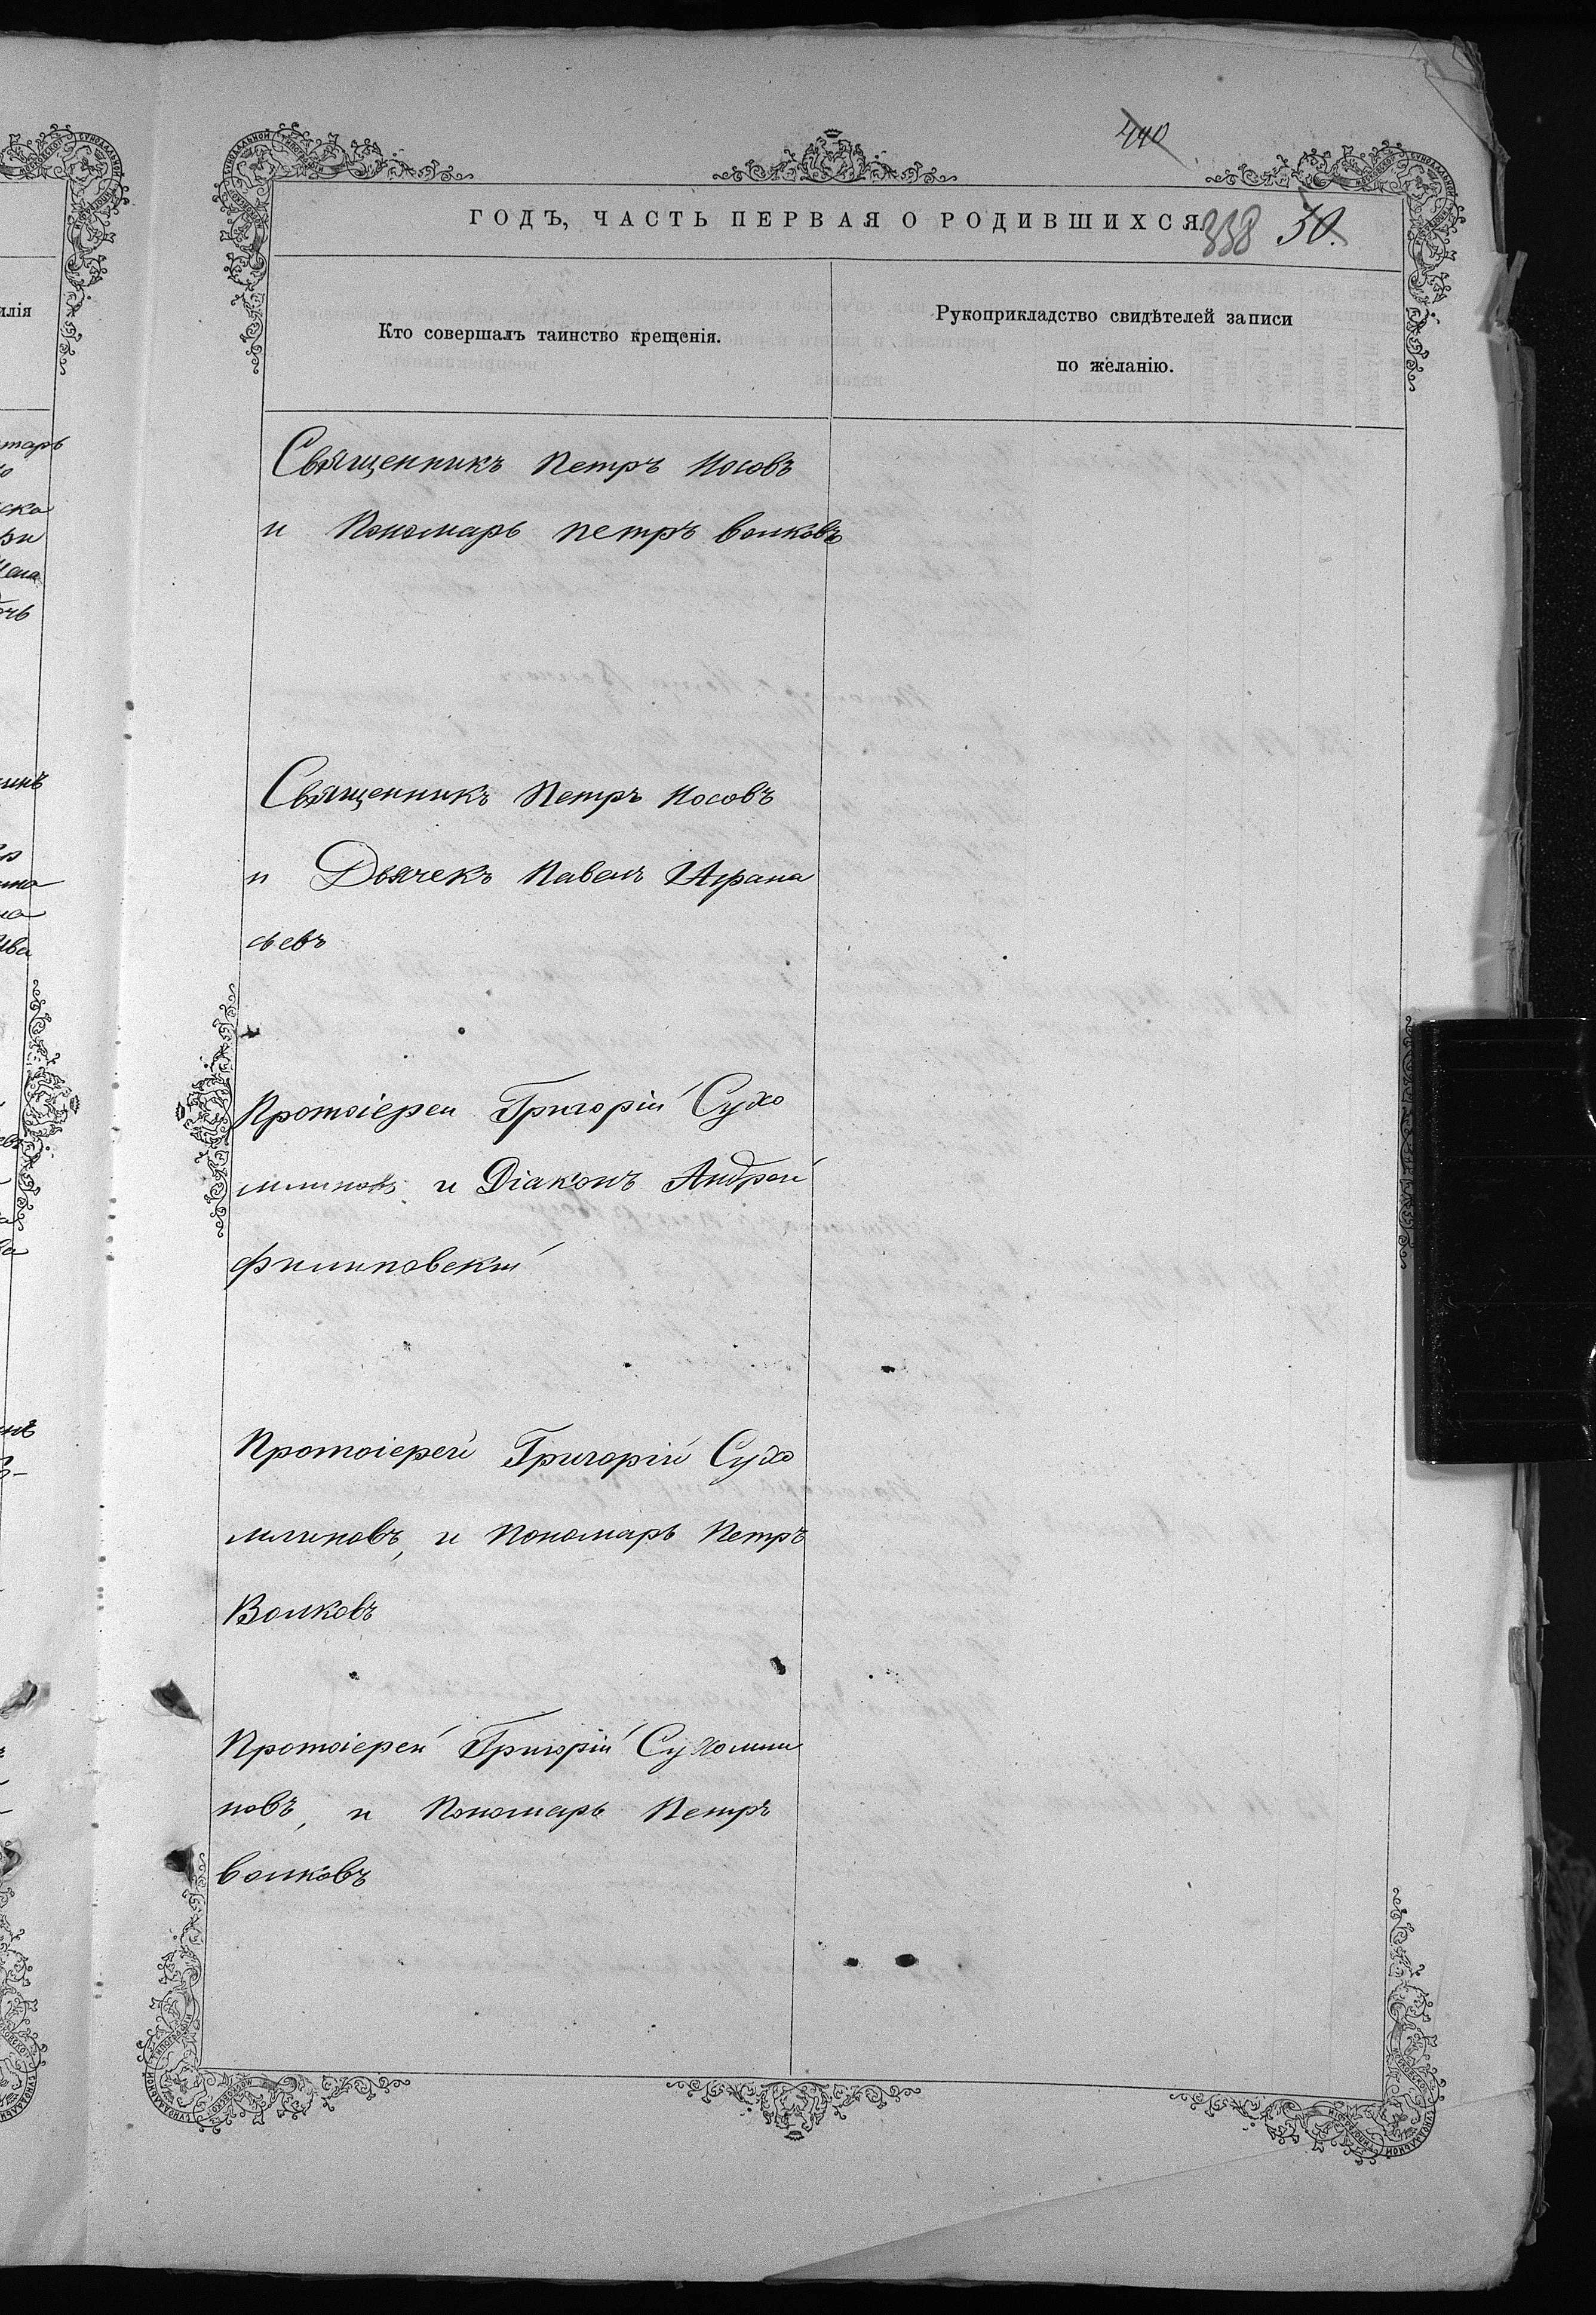 440
ГОДЪ, ЧАСТЬ ПЕРВАЯ О РОДИВШИХСЯ. 338 30.
илія
Кто совершалъ таинство крещенія.
Рукоприкладство свидѣтелей записи
по желанію.
Священникъ Петръ Носовъ
и Пономарь петръ волковъ
Священникъ Петръ Носовъ
и Дьячекъ Павелъ Афана
сьевъ
Протоіереи Григорій Сухо
млиновъ и Діаконъ Андрей
филиповскій
Протоіерей Григорій Сухо
млиновъ, и Пономарь Петръ
Волковъ
Протоіерей Григорій Сухомли
новъ, и Пономарь Петръ
волковъ